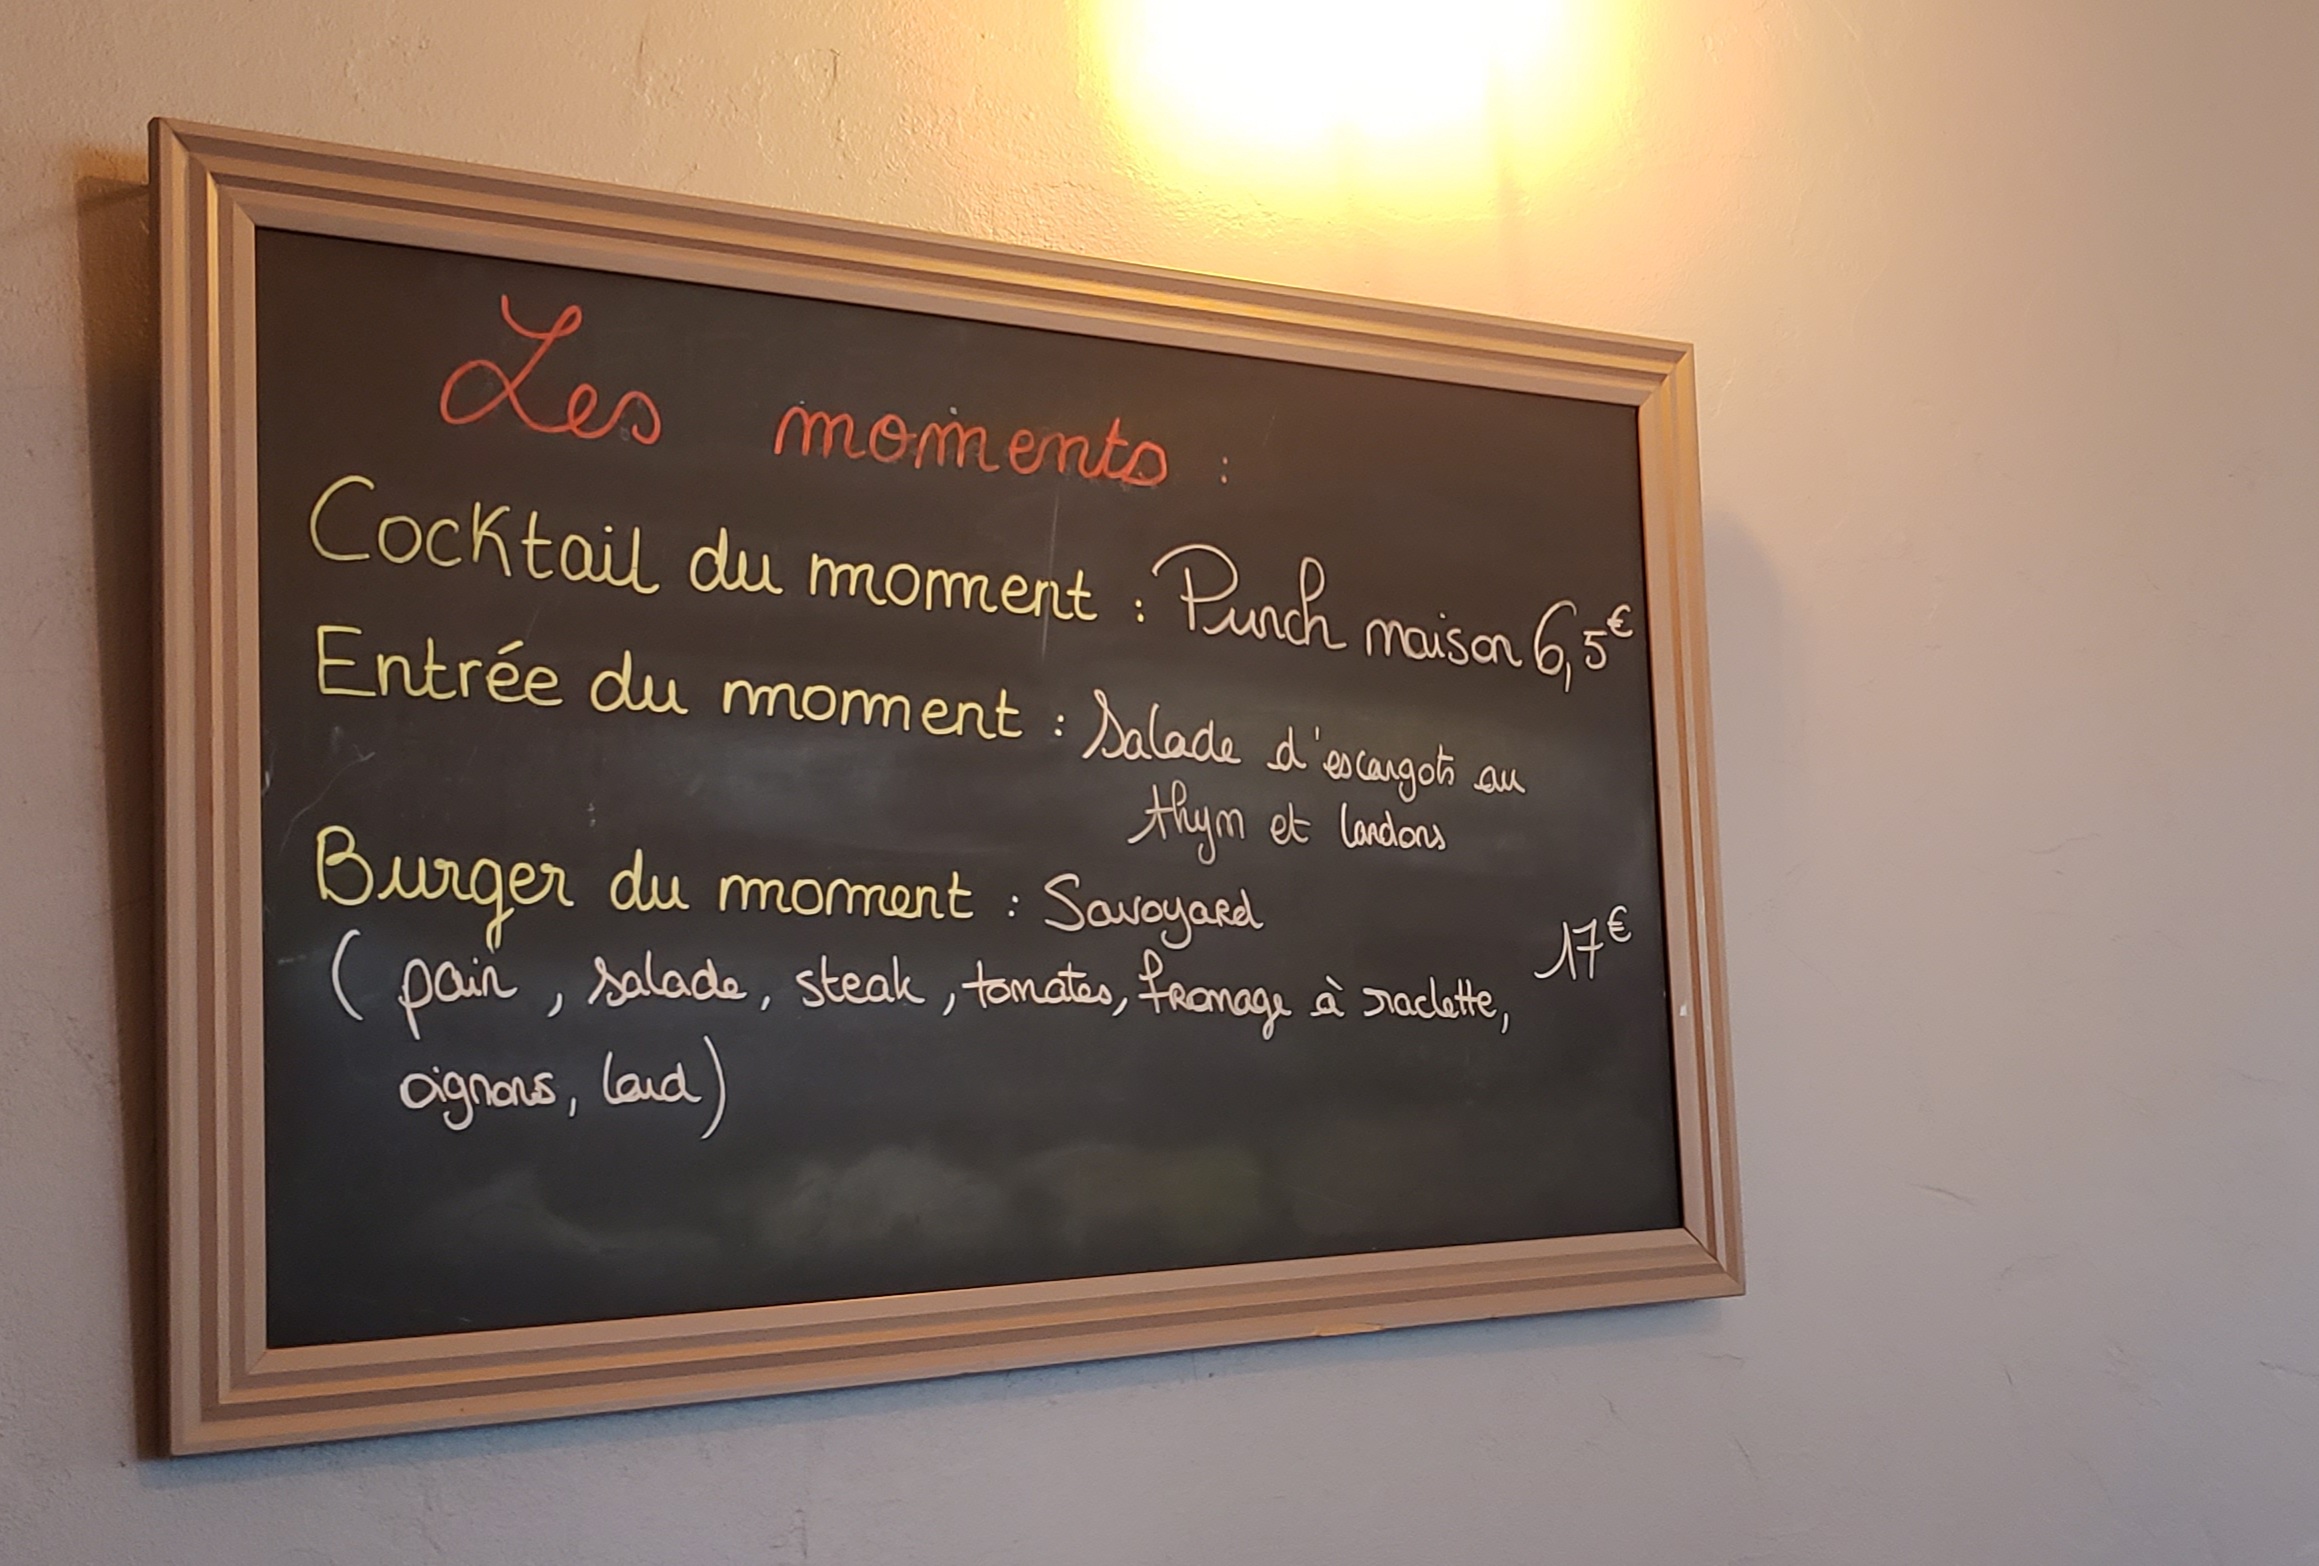 Les moments :
Cocktail du moment : Punch maison 6,5€
Entrée du moment : Salade d'escargots au
thym et lardons
Burger du moment : Savoyard
17€
( pain, salade, steak, tomates, fromage à raclette,
oignons, lard)